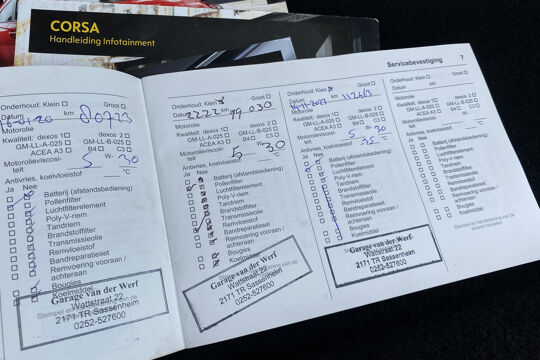 CORSA
Handleiding Infotainment
Servicebevestiging 7
Onderhoud: Klein Groot
km 80723
Motorolie
Kwaliteit: dexos 1 dexos 2
GM-LL-A-025 GM-LL-B-025
ACEA A3 B4 C3
Motorolieviscosi-
teit 5 W- 30
Antivries, koelvloeistof °C
Ja Nee
Batterij (afstandsbediening)
Pollenfilter
Luchtfilterelement
Poly-V-riem
Tandriem
Brandstoffilter
Transmissieolie
Remvloeistof
Bandreparatieset
Remvoering vooraan /
achteraan
Bougies
Koelmiddel
Garage van der Werf
Wattstraat 22
2171 TR Sassenheim
0252-527600
Onderhoud: Klein Groot
Datum km
Motorolie
Kwaliteit: dexos 1 dexos 2
GM-LL-A-025 GM-LL-B-025
ACEA A3 B4 C3
Motorolieviscosi-
teit 5 W- 30
Antivries, koelvloeistof °C
Ja Nee
Batterij (afstandsbediening)
Pollenfilter
Luchtfilterelement
Poly-V-riem
Tandriem
Brandstoffilter
Transmissieolie
Remvloeistof
Bandreparatieset
Remvoering vooraan /
achteraan
Bougies
Koelmiddel
Garage van der Werf
Wattstraat 22
2171 TR Sassenheim
0252-527600
Onderhoud: Klein Groot
Datum km
Motorolie
Kwaliteit: dexos 1 dexos 2
GM-LL-A-025 GM-LL-B-025
ACEA A3 B4 C3
Motorolieviscosi-
teit 5 W- 30
Antivries, koelvloeistof °C
Ja Nee
Batterij (afstandsbediening)
Pollenfilter
Luchtfilterelement
Poly-V-riem
Tandriem
Brandstoffilter
Transmissieolie
Remvloeistof
Bandreparatieset
Remvoering vooraan /
achteraan
Bougies
Koelmiddel
Garage van der Werf
Wattstraat 22
2171 TR Sassenheim
0252-527600
Onderhoud: Klein Groot
Datum km
Motorolie
Kwaliteit: dexos 1 dexos 2
GM-LL-A-025 GM-LL-B-025
ACEA A3 B4 C3
Motorolieviscosi-
teit W-
Antivries, koelvloeistof °C
Ja Nee
Batterij (afstandsbediening)
Pollenfilter
Luchtfilterelement
Poly-V-riem
Tandriem
Brandstoffilter
Transmissieolie
Remvloeistof
Bandreparatieset
Remvoering vooraan /
achteraan
Bougies
Koelmiddel